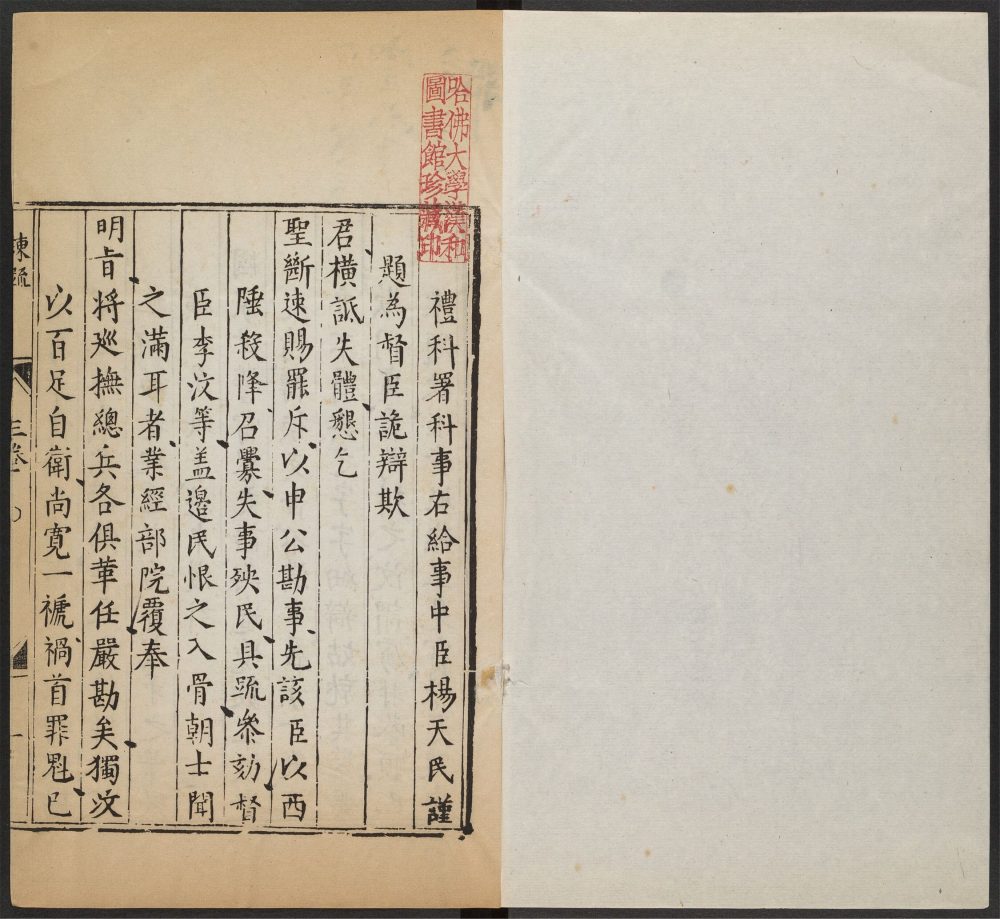 哈佛大學漢和
圖書館珍藏印
禮科署科事右給事中臣楊天民謹
題為督臣詭辯欺
君橫詆失體懇乞
聖斷速賜罷斥以申公勘事先該臣以西
陲殺降召釁失事殃民具疏叅劾督
臣李汶等盖邊民恨之入骨朝士聞
之滿耳者業經部院覆奉
明旨將巡撫總兵各俱革任嚴勘矣獨汶
以百足自衛尚寬一褫禍首罪魁已
諫疏
三卷
一